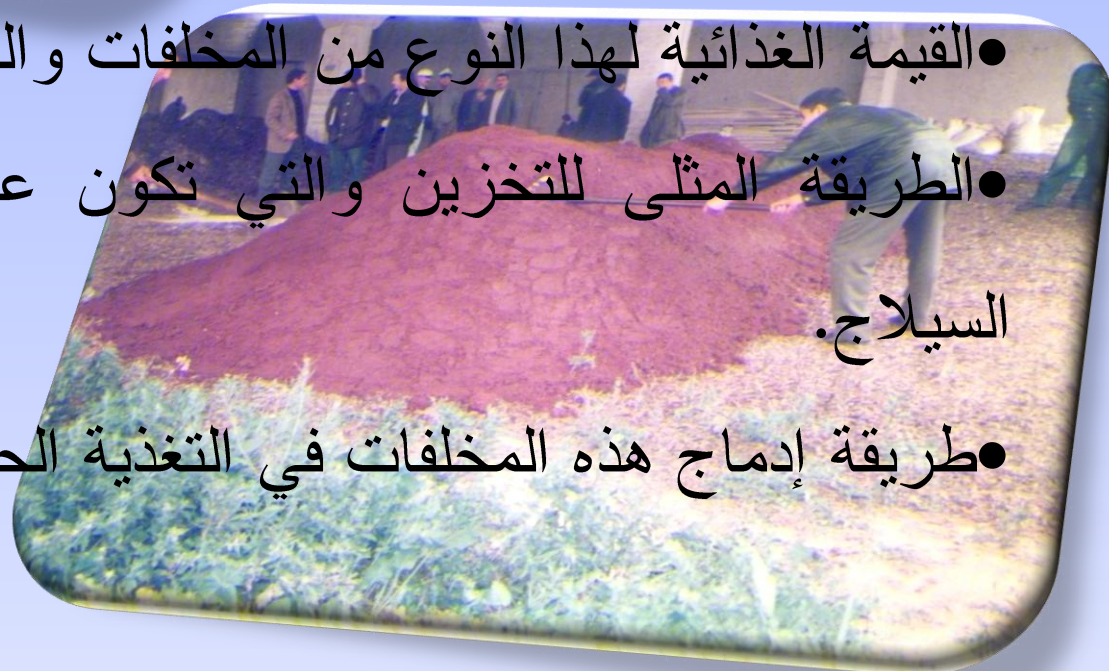 •القيمة الغذائية لهذا النوع من المخلفات
•الطريقة المثلى للتخزين والتي تكون
السيلاج.
•طريقة إدماج هذه المخلفات في التغذية